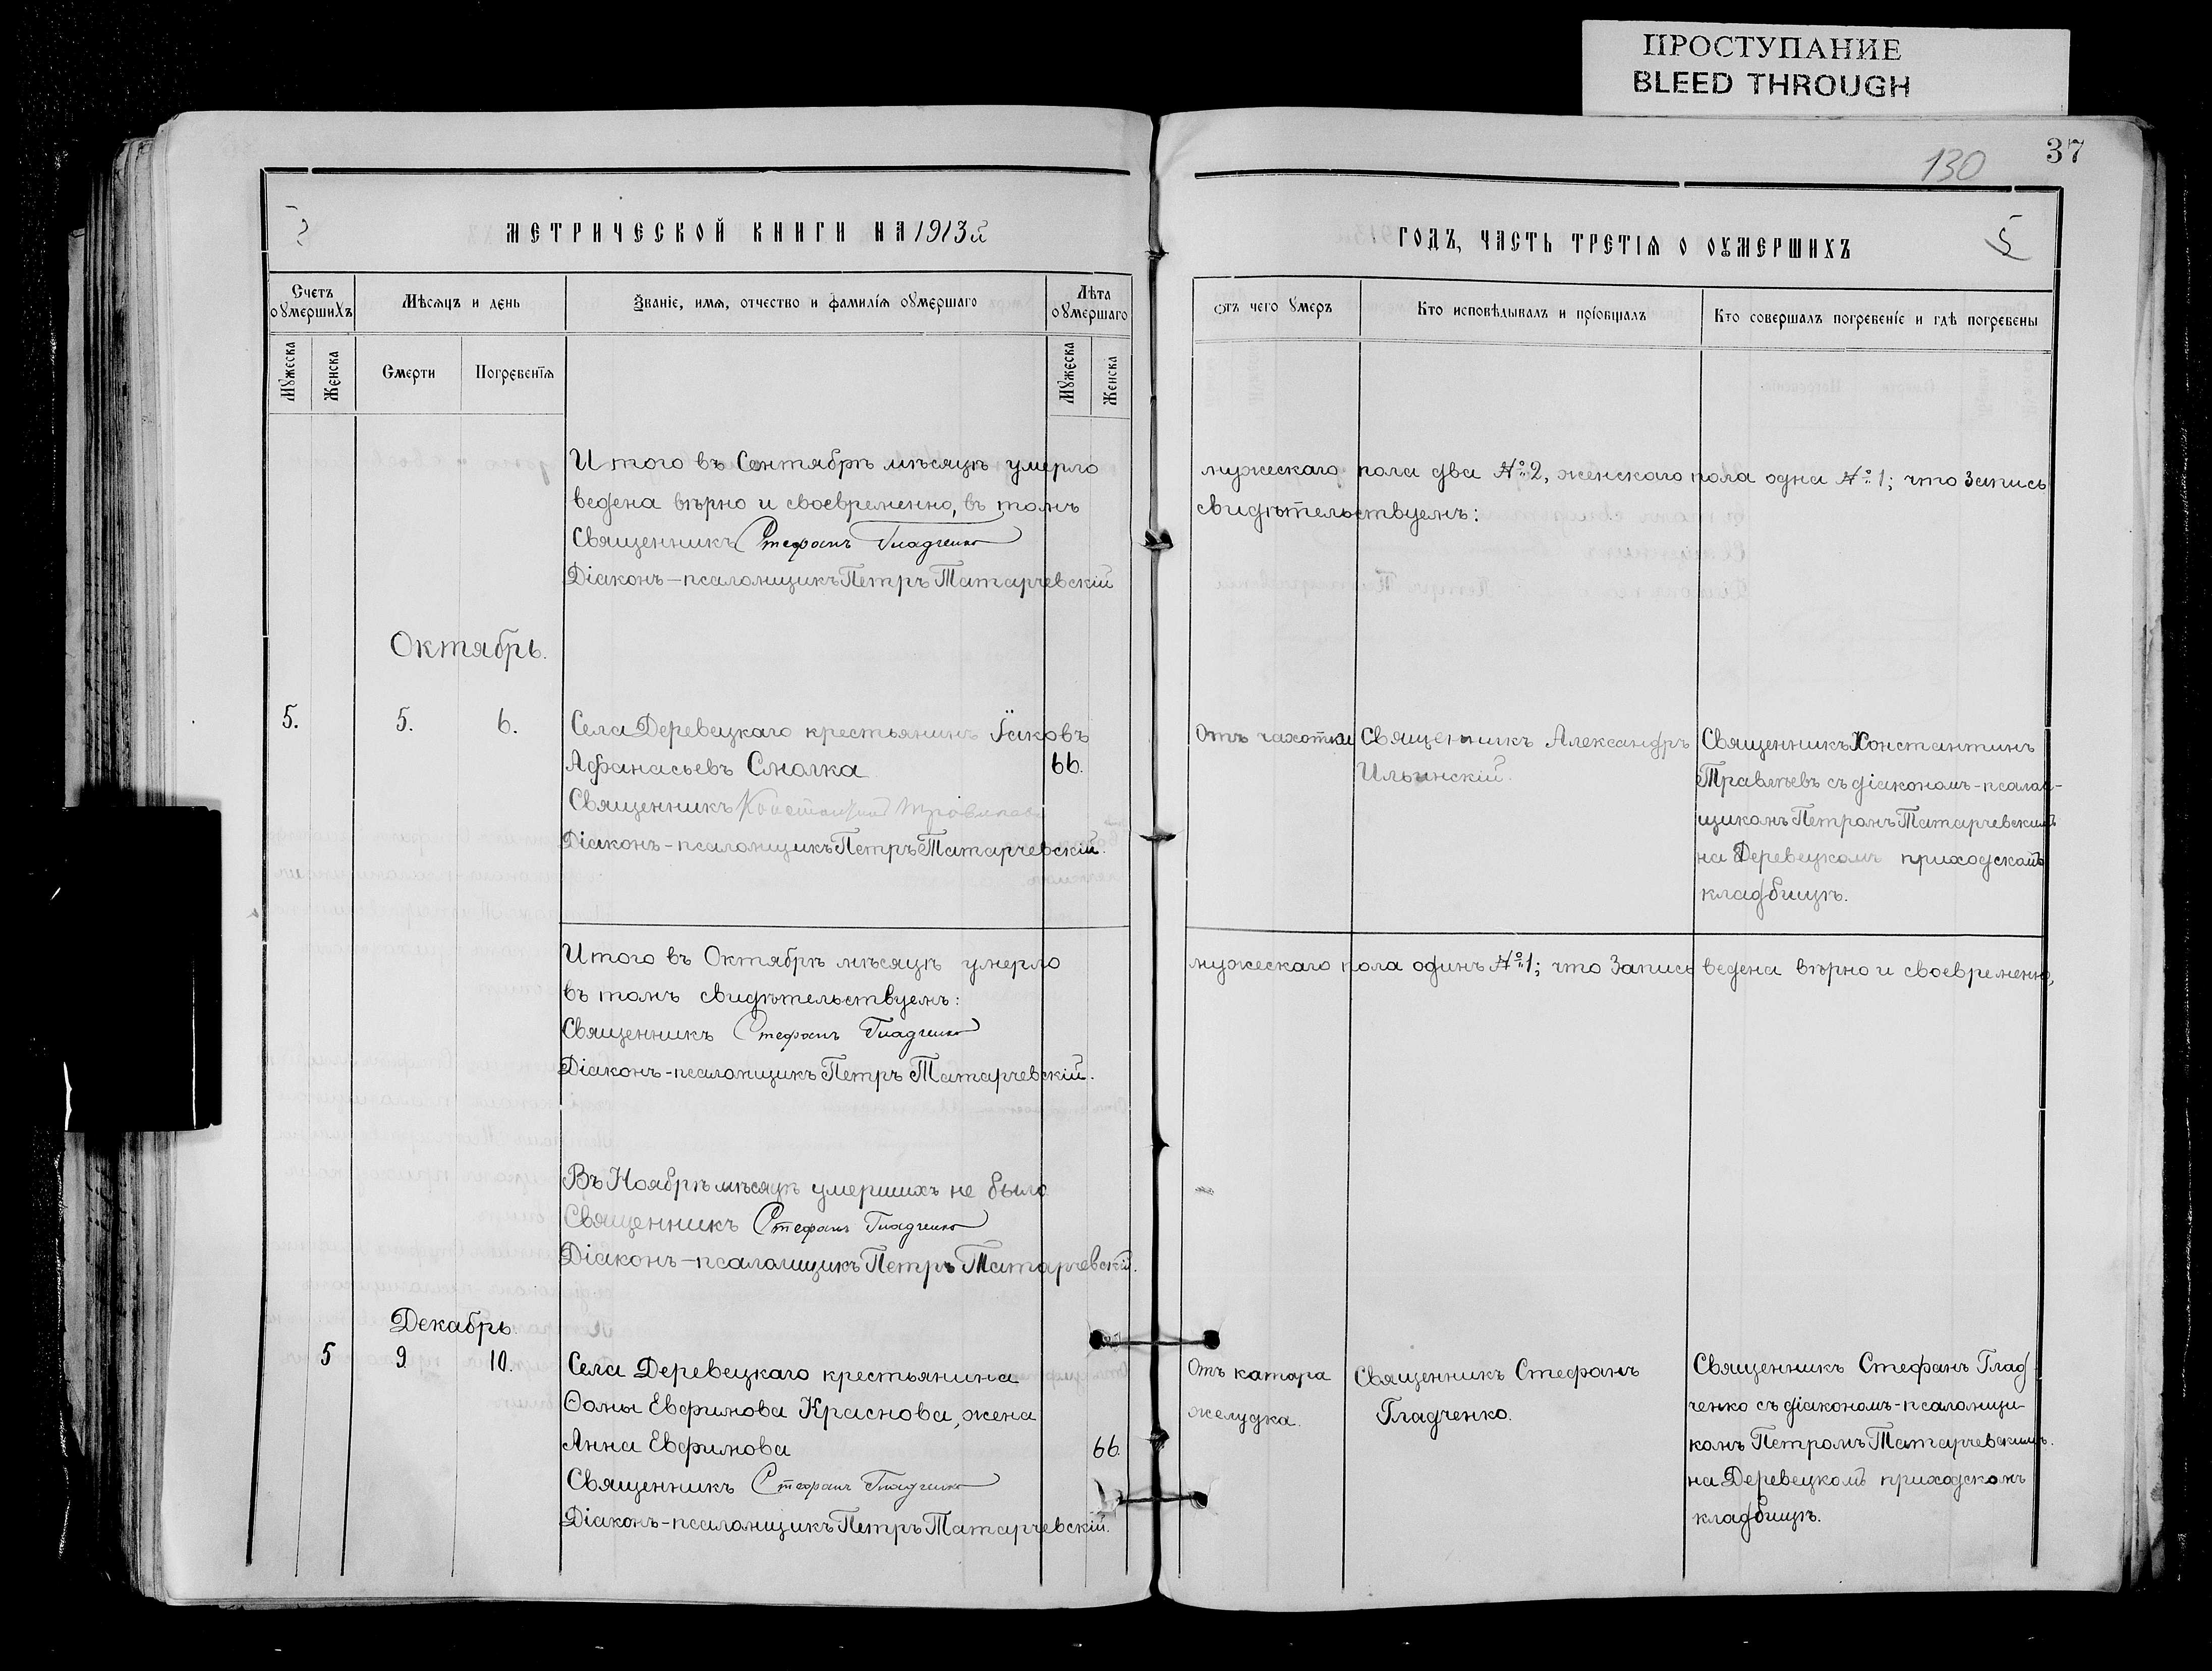 ПРОСТУПАНИЕ
BLEED THROUGH
37
130
МЕТРИЧЕСКОЙ КНИГИ НА 1913й
ГОДЪ, ЧАСТЬ ТРЕТІѦ О ОУМЕРШИХЪ
5
Счетъ оумершихъ
Мѣсяцъ и день
Званіе, имя, отчество и фамилія оумершаго
Лѣта оумершаго
Отъ чего умеръ
Кто исповѣдывалъ и пріобщалъ
Кто совершалъ погребеніе и гдѣ погребены
Мужеска
Женска
Смерти
Погребенїя
Мужеска
Женска
Итого въ Сентябрѣ мѣсяцѣ умерло
мужескаго пола два №2, женскаго пола одна №1; что запись
ведена вѣрно и своевременно, въ томъ
свидѣтельствуемъ:
Священникъ Стефанъ Гладченко
Діаконъ-псаломщикъ Петръ Татарчевскій
Октябрь.
5. 5. 6.
Села Деревецкаго крестьянинъ Іаковъ
Афанасьевъ Смолка 66.
Священникъ Константинъ Травлѣевъ
Діаконъ-псаломщикъ Петръ Татарчевскій.
Отъ чахотки
Священникъ Александръ
Ильинскій.
Священникъ Константинъ
съ діакономъ-псалом-
щикомъ Петромъ Татарчевскимъ
на Деревецкомъ приходскомъ
кладбищѣ.
Итого въ Октябрѣ мѣсяцѣ умерло
мужескаго пола одинъ №1; что запись ведена вѣрно и своевременно,
въ томъ свидѣтельствуемъ:
Священникъ Стефанъ Гладченко
Діаконъ-псаломщикъ Петръ Татарчевскій.
Въ Ноябрѣ мѣсяцѣ умершихъ не было
Священникъ Стефанъ Гладченко
Діаконъ-псаломщикъ Петръ Татарчевскій.
Декабрь.
5 9 10.
Села Деревецкаго крестьянина
Ѳомы Евфимова Краснова, жена
Анна Евфимова 66
Священникъ Стефанъ Гладченко
Діаконъ-псаломщикъ Петръ Татарчевскій.
Отъ катара
желудка.
Священникъ Стефанъ
Гладченко.
Священникъ Стефанъ Глад-
ченко съ діакономъ-псаломщи-
комъ Петромъ Татарчевскимъ.
на Деревецкомъ приходскомъ
кладбищѣ.